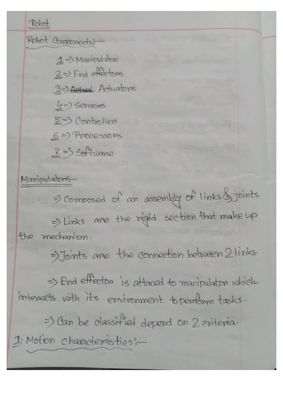 Robot
Robot Components:-
1 => Manipulator
2 => End effectors
3 => Actuators
4 => Sensors
5 => Controller
6 => Processors
7 => Software
Manipulator:-
=> Composed of an assembly of links & joints
=> Links are the rigid section that make up
the mechanism.
=> Joints are the connection between 2 links.
=> End effector is attaced to manipulator which
interacts with its environment to perform tasks.
=> Can be classified depend on 2 criteria.
1. Motion characteristics:-